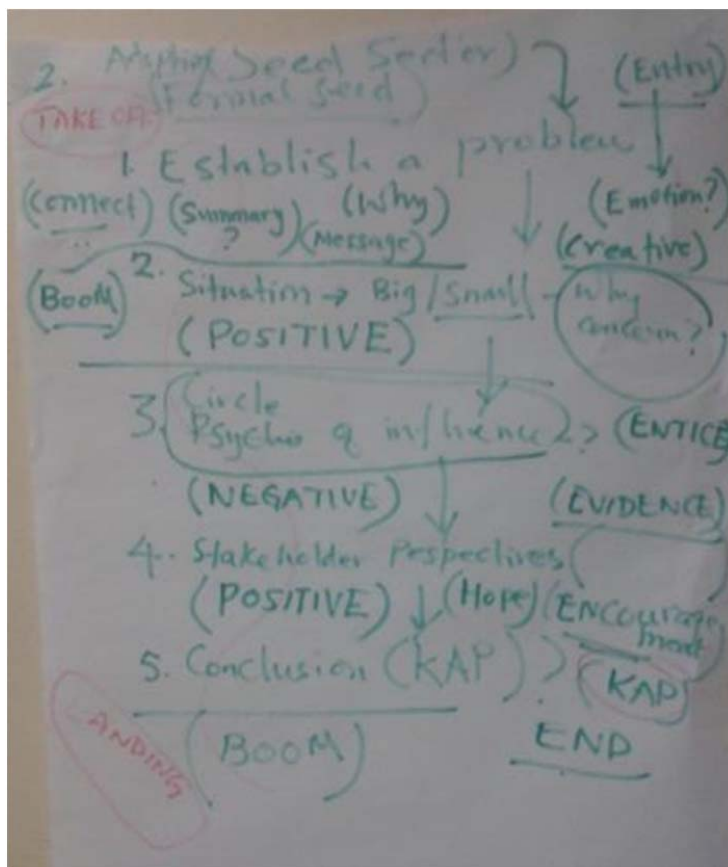 2. Seed Sector)
(Formal Seed)
(Entry)
TAKE OFF
1. Establish a problem
(Connect) (Summary?) (Why) (Emotion?)
(Message) (Creative)
(BOOM) 2. Situation → Big/Small - Why concern?
(POSITIVE)
3. Circle
Psycho q influence 2> (ENTICE
(NEGATIVE) (EVIDENCE)
4. Stakeholder Pespectives (
(POSITIVE) (Hope) (ENCOURAGEMENT
5. Conclusion (KAP)? (KAP)
ANDING (BOOM) END